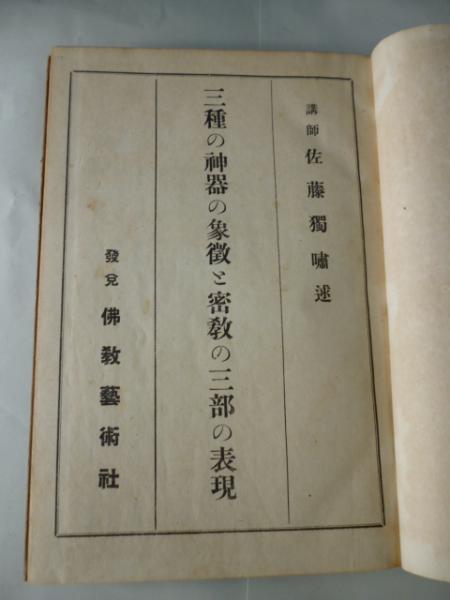 講師 佐藤獨嘯述
三種の神器の象徴と密教の三部の表現
發兌 佛教藝術社